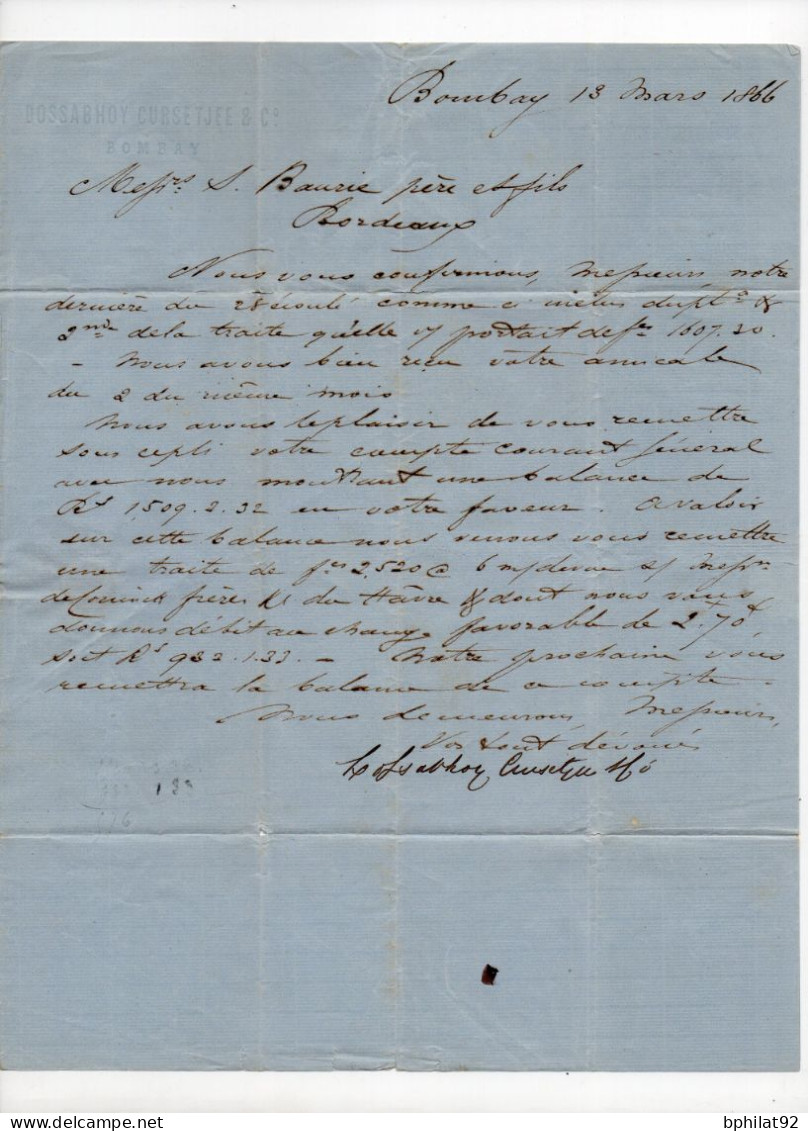 DOSSABHOY CURSETJEE & Co
BOMBAY
Bombay 13 Mars 1866
Messrs S. Baurie père et fils
Bordeaux
Nous vous confirmions, Messieurs, notre
dernière du 28 écoulé comme ci inclus dupta &
2me de la traite qu'elle vs portait de fcs 1607.20.
- Nous avons bien reçu votre amicale
du 2 du même mois
Nous avons le plaisir de vous remettre
sous ce pli votre compte courant général
avec nous montrant une balance de
Rs 1509.2.32 en votre faveur. A valoir
sur cette balance nous venons vous remettre
une traite de fcs 2,520 @ 6 m/ de vue s/ Messrs
de Coninck frères &c du Hâvre & dont nous vous
donnons débit au change favorable de 2.70
soit Rs 933.1.33. - Notre prochaine vous
remettra la balance de ce compte -
Nous demeurons, Messieurs,
Vos tout dévoués
Dossabhoy Cursetjee & Co
133
176
bphilat92